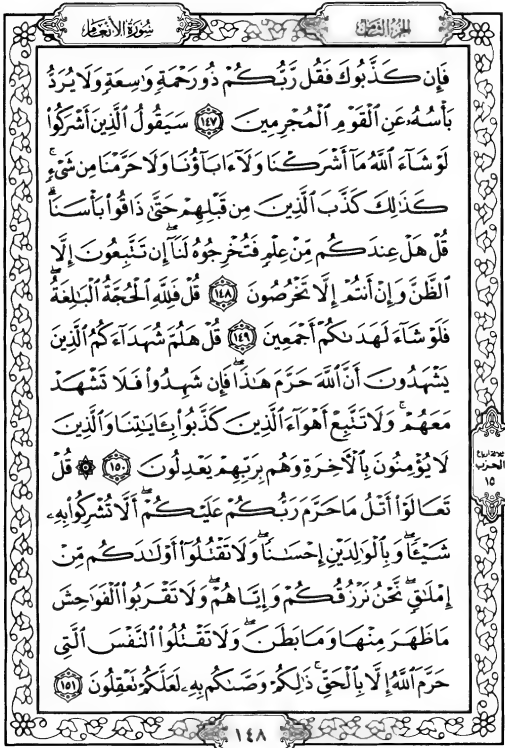 سُورَةُ الأَنْعَامِ
الجُزْءُ الثَّامِنُ
فَإِن كَذَّبُوكَ فَقُل رَّبُّكُمْ ذُو رَحْمَةٍ وَاسِعَةٍ وَلَا يُرَدُّ
بَأْسُهُۥ عَنِ ٱلْقَوْمِ ٱلْمُجْرِمِينَ ١٤٧ سَيَقُولُ ٱلَّذِينَ أَشْرَكُوا۟
لَوْ شَآءَ ٱللَّهُ مَآ أَشْرَكْنَا وَلَآ ءَابَآؤُنَا وَلَا حَرَّمْنَا مِن شَىْءٍۚ
كَذَٰلِكَ كَذَّبَ ٱلَّذِينَ مِن قَبْلِهِمْ حَتَّىٰ ذَاقُوا۟ بَأْسَنَاۗ
قُلْ هَلْ عِندَكُم مِّنْ عِلْمٍ فَتُخْرِجُوهُ لَنَآۖ إِن تَتَّبِعُونَ إِلَّا
ٱلظَّنَّ وَإِنْ أَنتُمْ إِلَّا تَخْرُصُونَ ١٤٨ قُلْ فَلِلَّهِ ٱلْحُجَّةُ ٱلْبَٰلِغَةُۖ
فَلَوْ شَآءَ لَهَدَىٰكُمْ أَجْمَعِينَ ١٤٩ قُلْ هَلُمَّ شُهَدَآءَكُمُ ٱلَّذِينَ
يَشْهَدُونَ أَنَّ ٱللَّهَ حَرَّمَ هَٰذَاۖ فَإِن شَهِدُوا۟ فَلَا تَشْهَدْ
مَعَهُمْۚ وَلَا تَتَّبِعْ أَهْوَآءَ ٱلَّذِينَ كَذَّبُوا۟ بِـَٔايَٰتِنَا وَٱلَّذِينَ
لَا يُؤْمِنُونَ بِٱلْءَاخِرَةِ وَهُم بِرَبِّهِمْ يَعْدِلُونَ ١٥٠ ۞ قُلْ
تَعَالَوْا۟ أَتْلُ مَا حَرَّمَ رَبُّكُمْ عَلَيْكُمْۖ أَلَّا تُشْرِكُوا۟ بِهِۦ
شَيْـًٔاۖ وَبِٱلْوَٰلِدَيْنِ إِحْسَٰنًاۖ وَلَا تَقْتُلُوٓا۟ أَوْلَٰدَكُم مِّنْ
إِمْلَٰقٍۖ نَّحْنُ نَرْزُقُكُمْ وَإِيَّاهُمْۖ وَلَا تَقْرَبُوا۟ ٱلْفَوَٰحِشَ
مَا ظَهَرَ مِنْهَا وَمَا بَطَنَۖ وَلَا تَقْتُلُوا۟ ٱلنَّفْسَ ٱلَّتِى
حَرَّمَ ٱللَّهُ إِلَّا بِٱلْحَقِّۚ ذَٰلِكُمْ وَصَّىٰكُم بِهِۦ لَعَلَّكُمْ تَعْقِلُونَ ١٥١
ثلاثة أرباع
الحزب
١٥
١٤٨